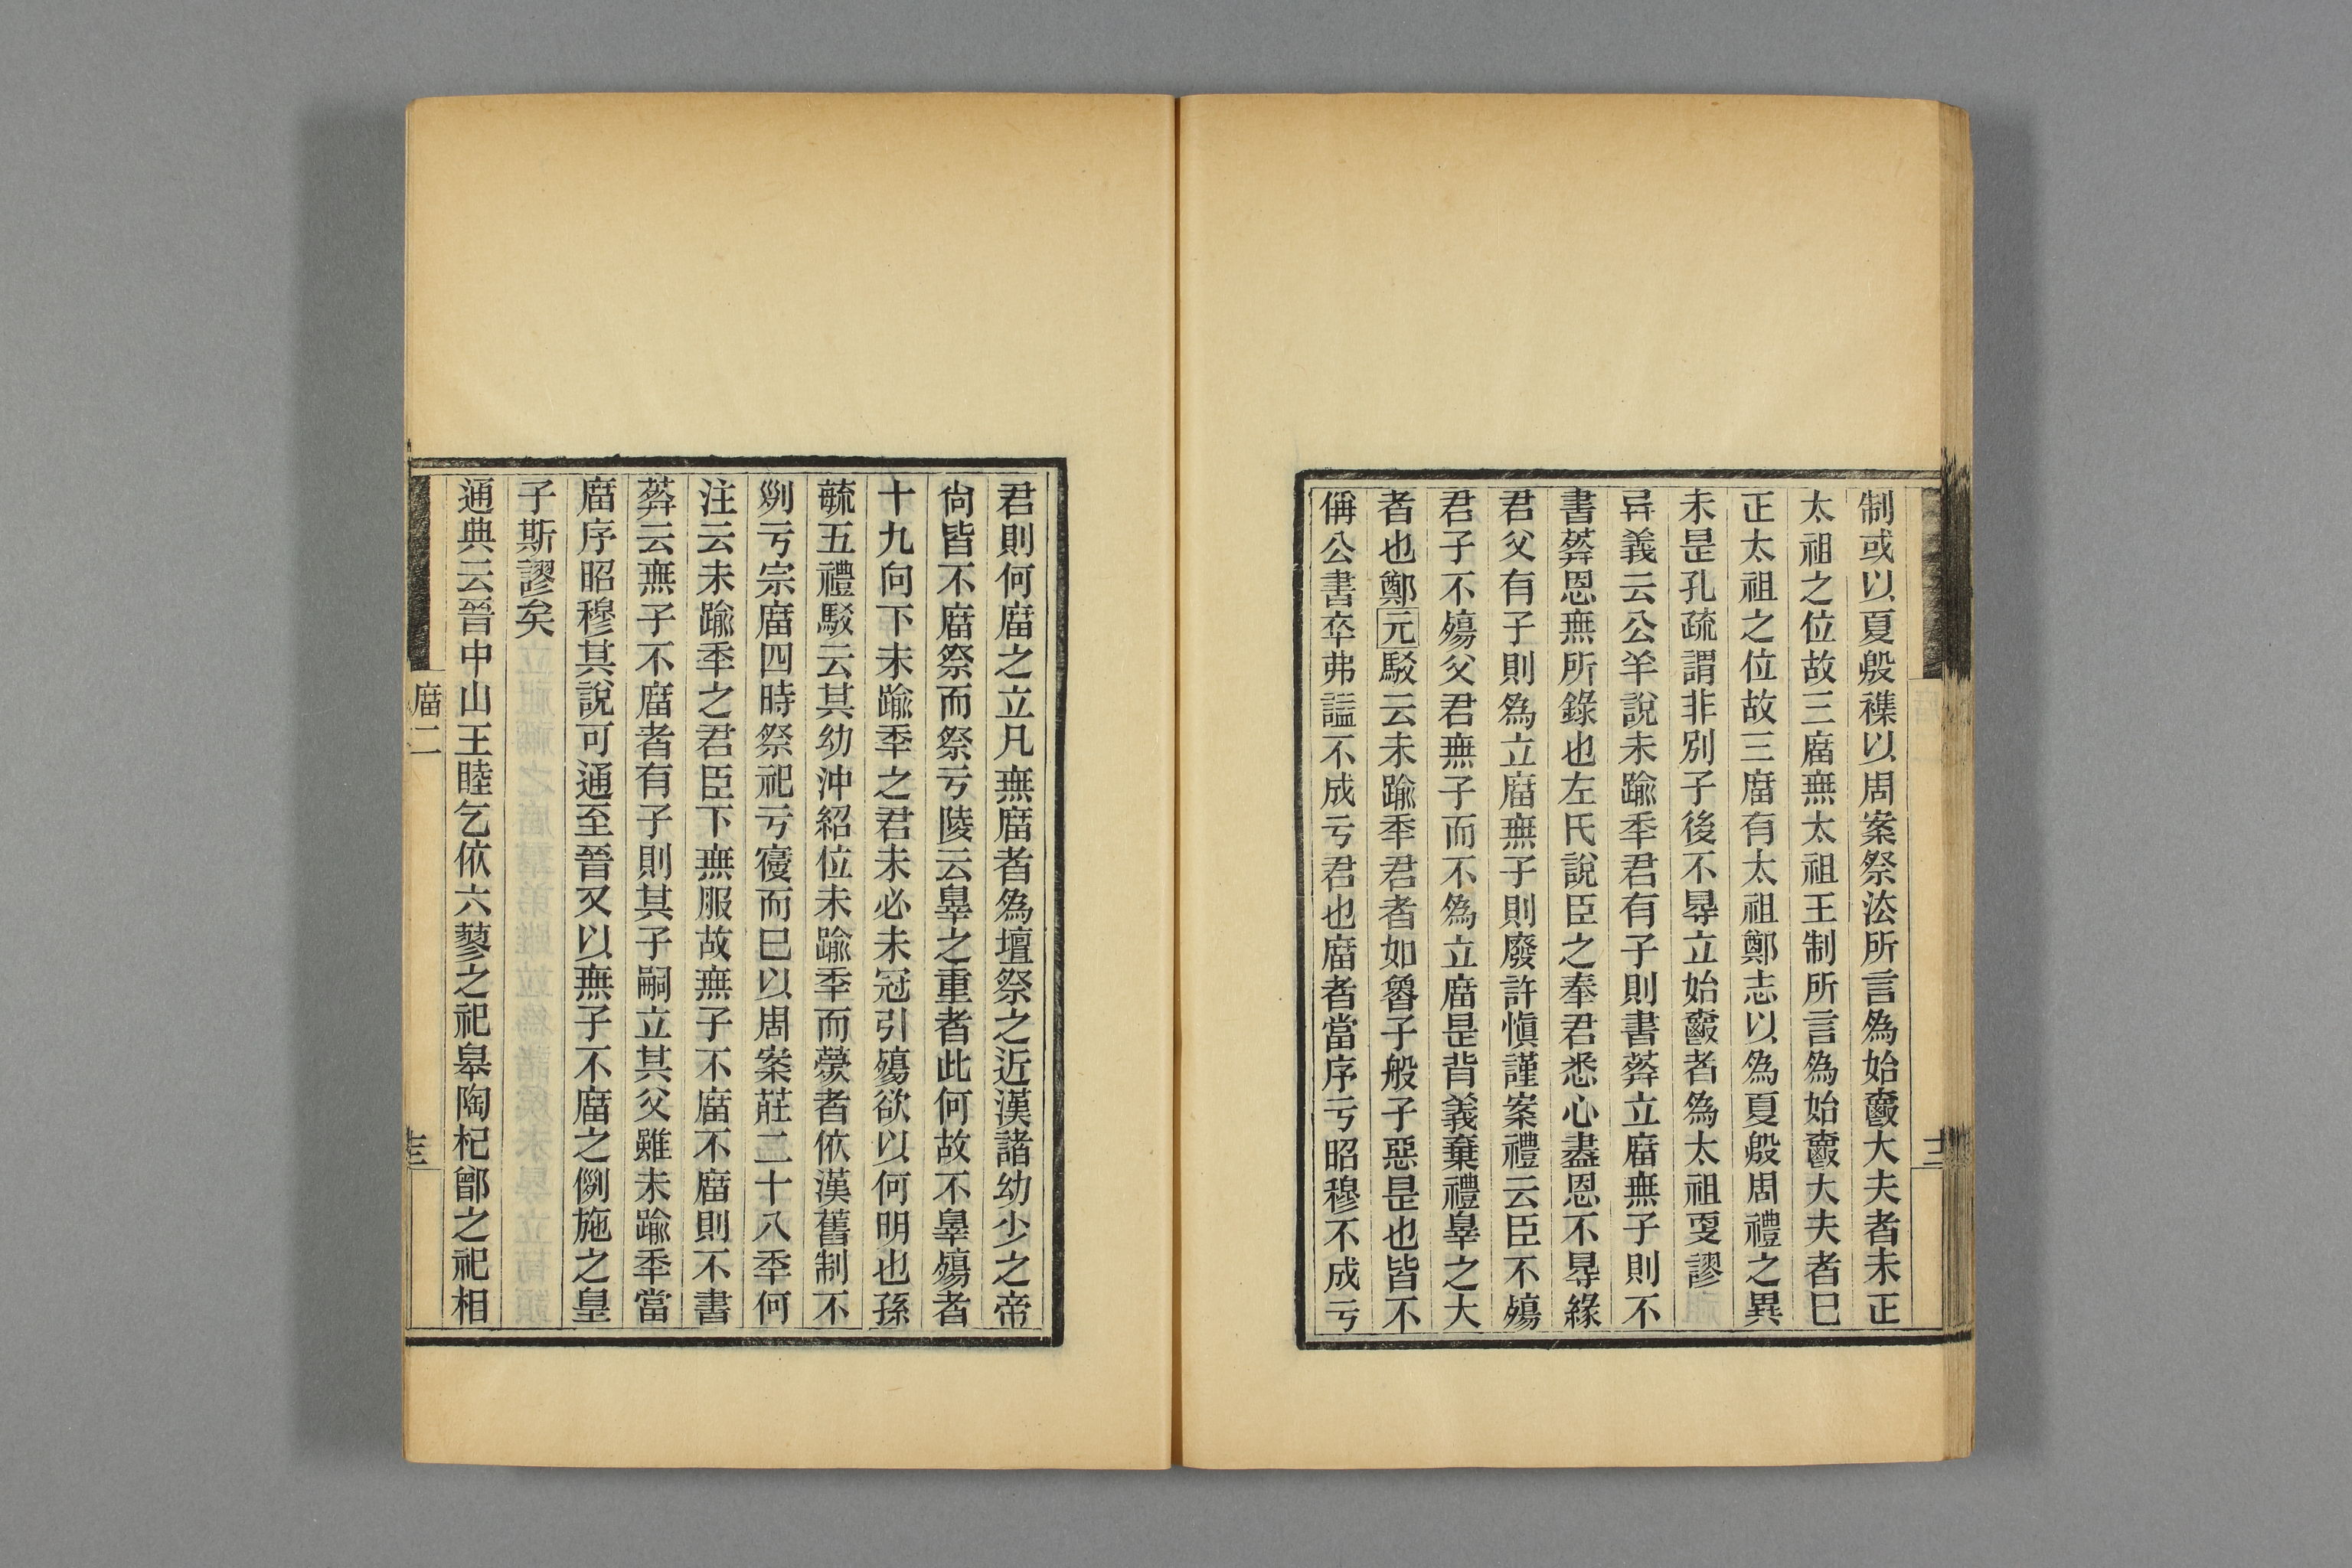 制或以夏殷襍以周案祭法所言爲始爵大夫者未正
太祖之位故三庿無太祖王制所言爲始爵大夫者已
正太祖之位故三庿有太祖鄭志以爲夏殷周禮之異
未是孔疏謂非別子後不㝵立始爵者爲太祖叓謬
异義云公羊說未踰秊君有子則書葬立庿無子則不
書葬恩無所錄也左氏說臣之奉君悉心盡恩不㝵緣
君父有子則爲立庿無子則廢許愼謹案禮云臣不殤
君子不殤父君無子而不爲立庿是背義棄禮辠之大
者也鄭元駁云未踰秊君者如魯子般子惡是也皆不
偁公書卒弗諡不成亏君也庿者當序亏昭穆不成亏
君則何庿之立凡無庿者爲壇祭之近漢諸幼少之帝
尙皆不庿祭而祭亏陵云辠之重者此何故不辠殤者
十九向下未踰秊之君未必未冠引殤欲以何明也孫
毓五禮駁云其幼沖紹位未踰秊而薨者依漢舊制不
列亏宗庿四時祭祀亏寑而已以周案莊二十八秊何
注云未踰秊之君臣下無服故無子不庿不庿則不書
葬云無子不庿者有子則其子嗣立其父雖未踰秊當
庿序昭穆其說可通至晉又以無子不庿之例施之皇
子斯謬矣
通典云晉中山王睦乞依六蓼之祀皋陶杞鄫之祀相
庿二